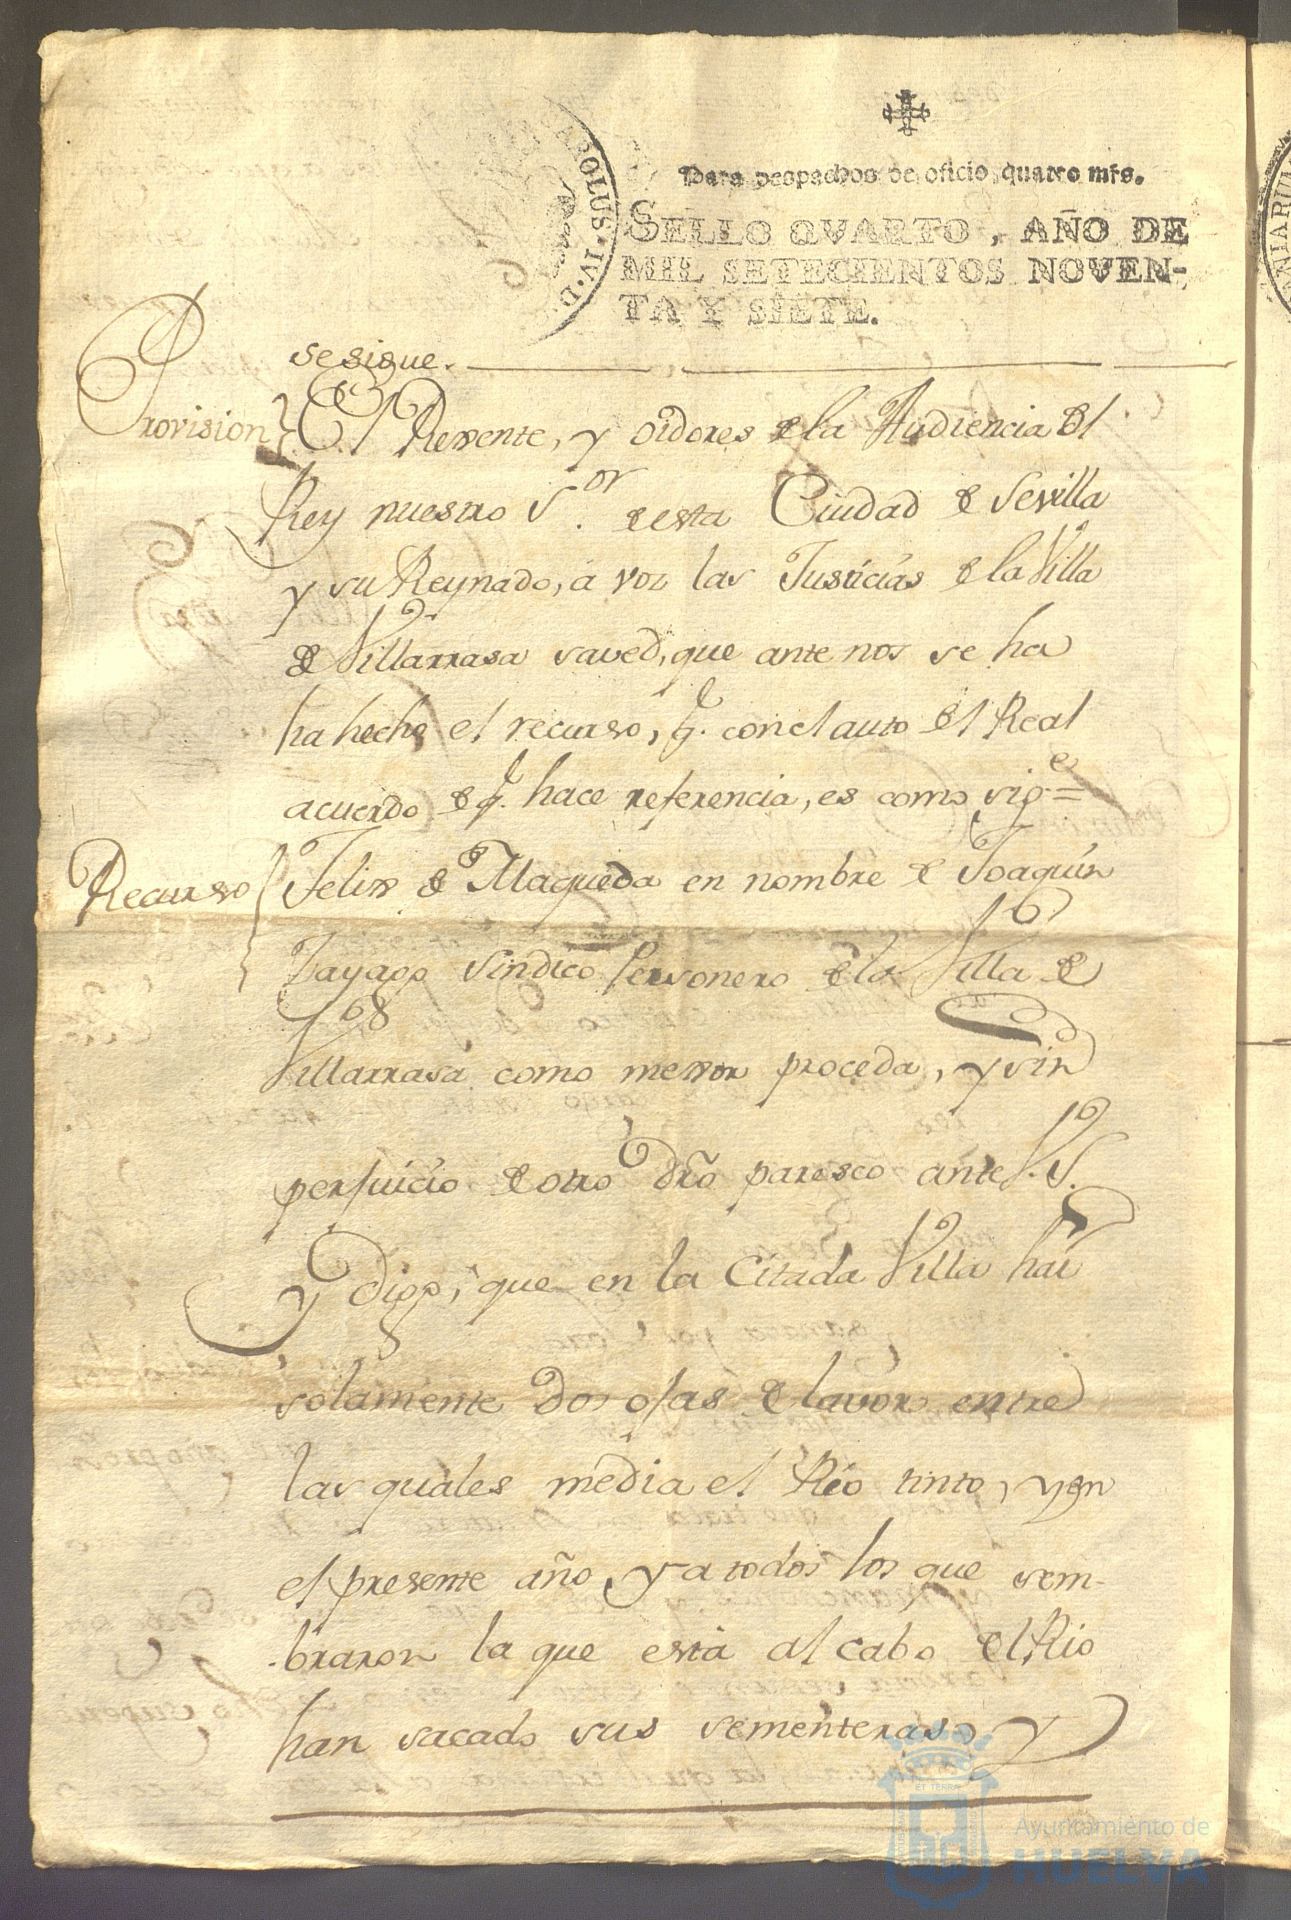 Para despachos de oficio, quatro mrs.
CAROLUS·IV·D·
SELLO QVARTO, AÑO DE
MIL SETECIENTOS NOVEN-
TA Y SIETE.
se sigue.
Provision
El Rexente, y oidores de la Audiencia del
Rey nuestro S.or de esta Ciudad de Sevilla
y su Reynado, a vos las Justicias de la Villa
de Villarrasa saved, que ante nos se ha
ha hecho el recurso, q.e con el auto del Real
acuerdo de q.e hace referencia, es como sig.e=
Recurso
Felix de Maqueda en nombre de Joaquin
Tayago Sindico Personero de la Villa de
Villarrasa como mexor proceda, y sin
perjuicio de otro dro paresco ante V.S.
y digo, que en la Citada Villa hai
solamente dos ojas de lavor entre
las quales media el Rio tinto, y en
el presente año, ya todos los que sem-
braron la que está al cabo del Rio
han sacado sus sementeras, y
ET TERRA
Ayuntamiento de
HUELVA